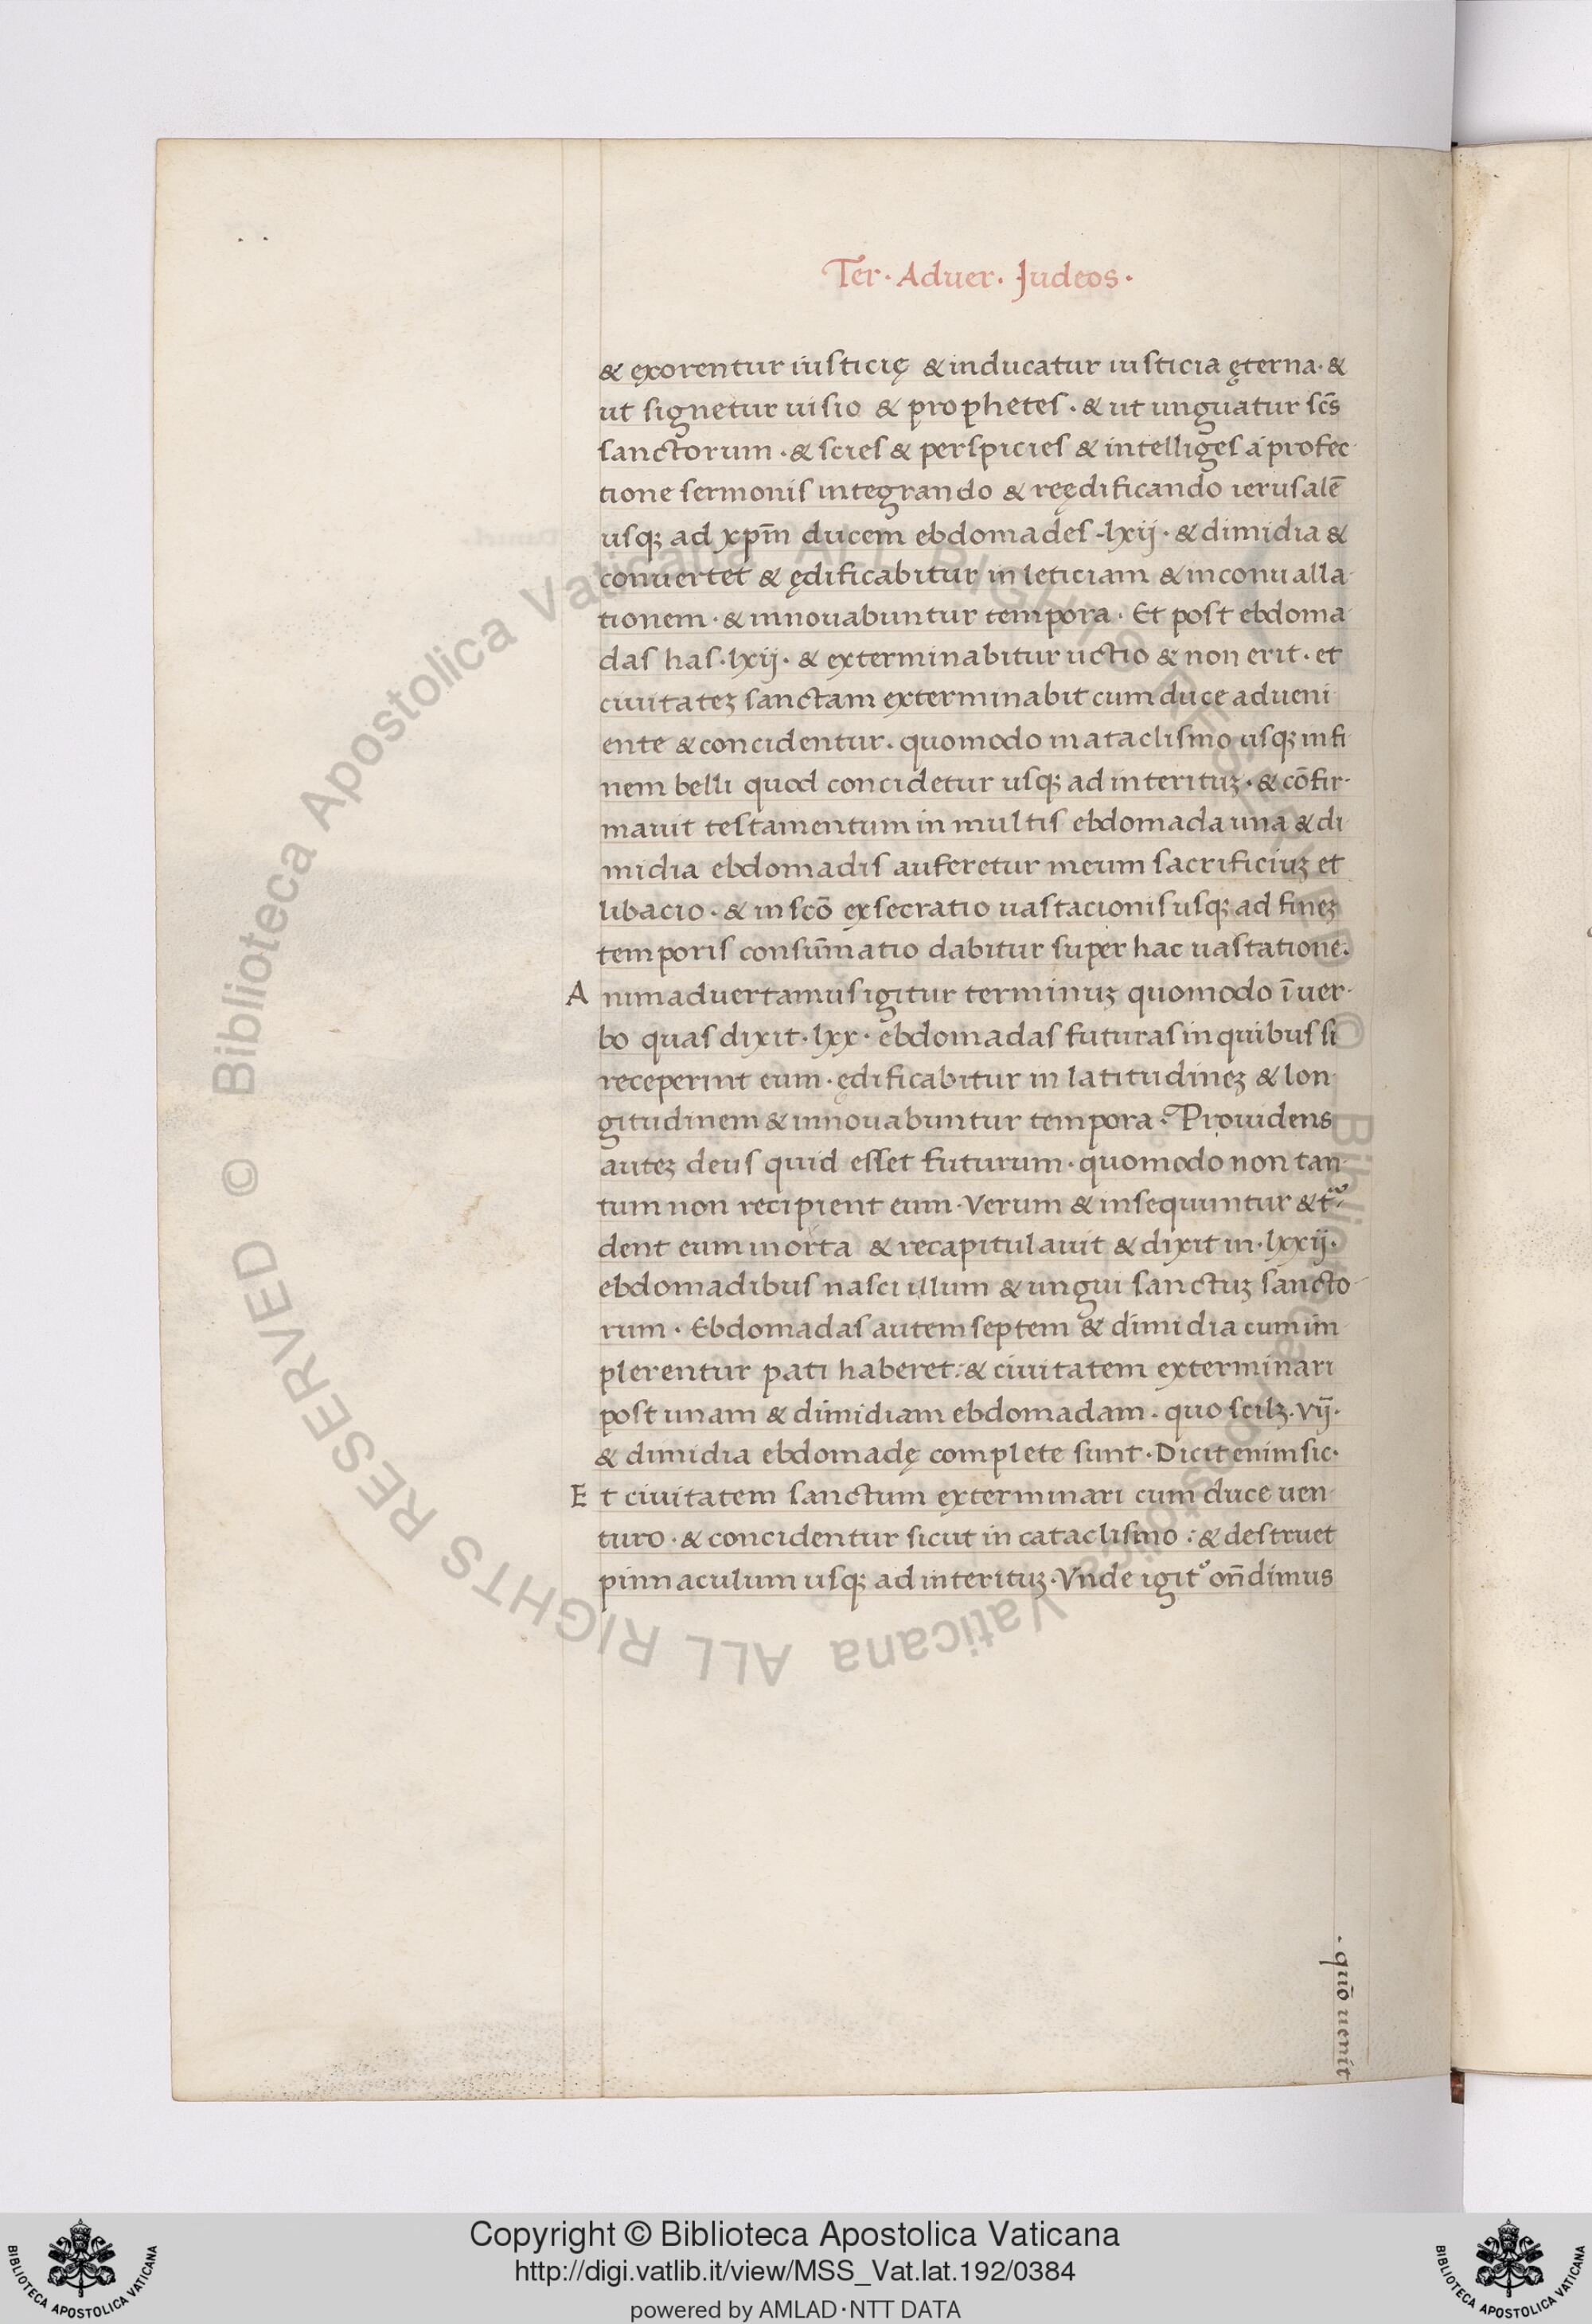 Ter · Aduer · Judeos ·
& ęxorentur iusticię & inducatur iusticia ęterna · &
ut signetur uisio & prophetes · & ut unguatur scs̄
sanctorum · & scies & perspicies & intelliges á profec
tione sermonis integrando & reędificando ierusalē
usqꝫ ad xpm̄ ducem ebdomades · lxij · & dimidia &
conuertet & ędificabitur in leticiam & inconualla
tionem · & innouabuntur tempora · Et post ebdoma
das has · lxij · & exterminabitur uctio & non erit · et
ciuitateꝫ sanctam exterminabit cum duce adueni
ente & concidentur · quomodo in ataclismo usqꝫ in fi
nem belli quod concidetur usqꝫ ad interituꝫ · & cōfir
mauit testamentum in multis ebdomada una & di
midia ebdomadis auferetur meum sacrificiuꝫ et
libacio · & in scō exsecratio uastacionis usqꝫ ad fineꝫ
temporis consum̄atio dabitur super hac uastatione.
A nimaduertamus igitur terminuꝫ quomodo ī uer
bo quas dixit · lxx · ebdomadas futuras in quibus si
receperint eum · ędificabitur in latitudineꝫ & lon
gitudinem & innouabuntur tempora · Prouidens
auteꝫ deus quid esset futurum · quomodo non tan
tum non recipient eum · Verum & insequuntur & t
dent eum morta & recapitulauit & dixit in · lxxij ·
ebdomadibus nasci illum & ungui sanctuꝫ sancto
rum · Ebdomadas autem septem & dimidia cum im
plerentur pati haberet : & ciuitatem exterminari
post unam & dimidiam ebdomadam · quo scilꝫ · vij ·
& dimidia ebdomadę complete sunt · Dicit enim sic ·
E t ciuitatem sanctum exterminari cum duce uen
turo · & concidentur sicut in cataclismo : & destruet
pinnaculum usqꝫ ad interituꝫ · Vnde igit᷑ on̄dimus
· quō uenit
Copyright © Biblioteca Apostolica Vaticana
http://digi.vatlib.it/view/MSS_Vat.lat.192/0384
powered by AMLAD·NTT DATA
BIBLIOTECA APOSTOLICA VATICANA
BIBLIOTECA APOSTOLICA VATICANA
© Biblioteca Apostolica Vaticana ALL RIGHTS RESERVED © Biblioteca Apostolica Vaticana ALL RIGHTS RESERVED